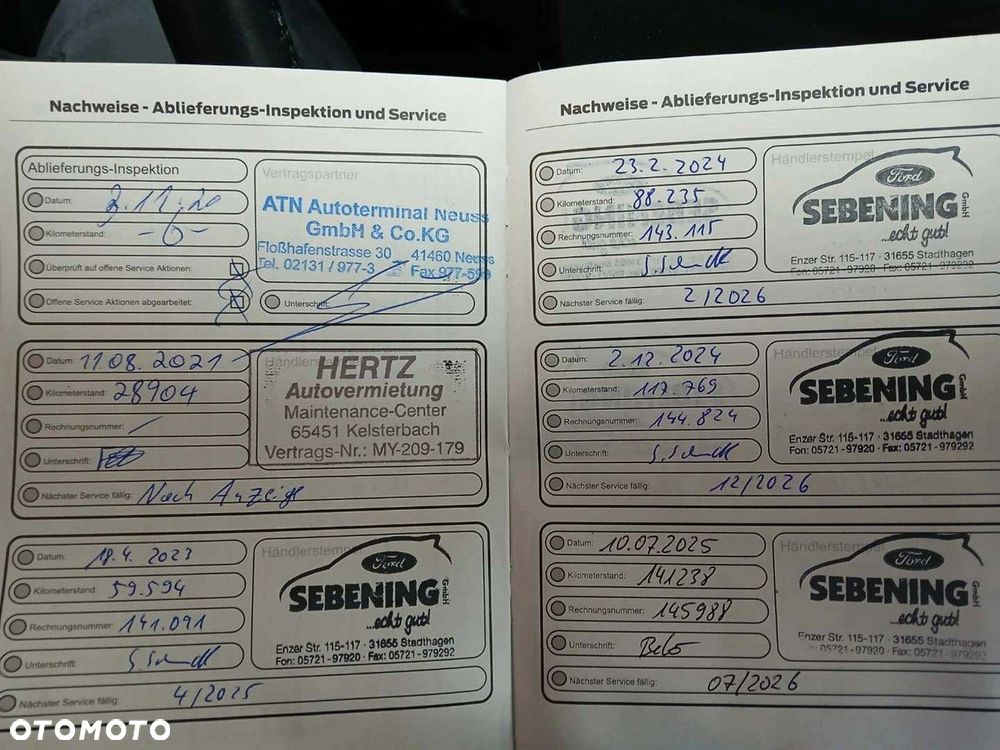 Nachweise - Ablieferungs-Inspektion und Service
Ablieferungs-Inspektion
Datum: 3.11.20
Kilometerstand: -0-
Überprüft auf offene Service Aktionen:
Offene Service Aktionen abgearbeitet:
Vertragspartner
ATN Autoterminal Neuss
GmbH & Co.KG
Floßhafenstrasse 30 41460 Neuss
Tel. 02131 / 977-3 Fax 977-599
Unterschrift:
Datum: 11.08.2021
Kilometerstand: 28904
Rechnungsnummer: /
Unterschrift:
Nächster Service fällig: Nach Anzeige
HERTZ
Autovermietung
Maintenance-Center
65451 Kelsterbach
Vertrags-Nr.: MY-209-179
Datum: 18.4. 2023
Kilometerstand: 59.594
Rechnungsnummer: 141.091
Unterschrift:
Nächster Service fällig: 4/2025
Händlerstempel
Ford
SEBENING GmbH
...echt gut!
Enzer Str. 115-117 · 31655 Stadthagen
Fon: 05721-97920 · Fax: 05721-979292
Nachweise - Ablieferungs-Inspektion und Service
Datum: 23.2.2024
Kilometerstand: 88.235
Rechnungsnummer: 143.115
Unterschrift:
Nächster Service fällig: 2/2026
Händlerstempel
Ford
SEBENING GmbH
...echt gut!
Enzer Str. 115-117 · 31655 Stadthagen
Fon: 05721-97920 · Fax: 05721-979292
Datum: 2.12.2024
Kilometerstand: 117.769
Rechnungsnummer: 144.824
Unterschrift:
Nächster Service fällig: 12/2026
Händlerstempel
Ford
SEBENING GmbH
...echt gut!
Enzer Str. 115-117 · 31655 Stadthagen
Fon: 05721-97920 · Fax: 05721-979292
Datum: 10.07.2025
Kilometerstand: 141238
Rechnungsnummer: 145988
Unterschrift:
Nächster Service fällig: 07/2026
Händlerstempel
Ford
SEBENING GmbH
...echt gut!
Enzer Str. 115-117 · 31655 Stadthagen
05721-97920 · Fax: 05721-979292
OTOMOTO